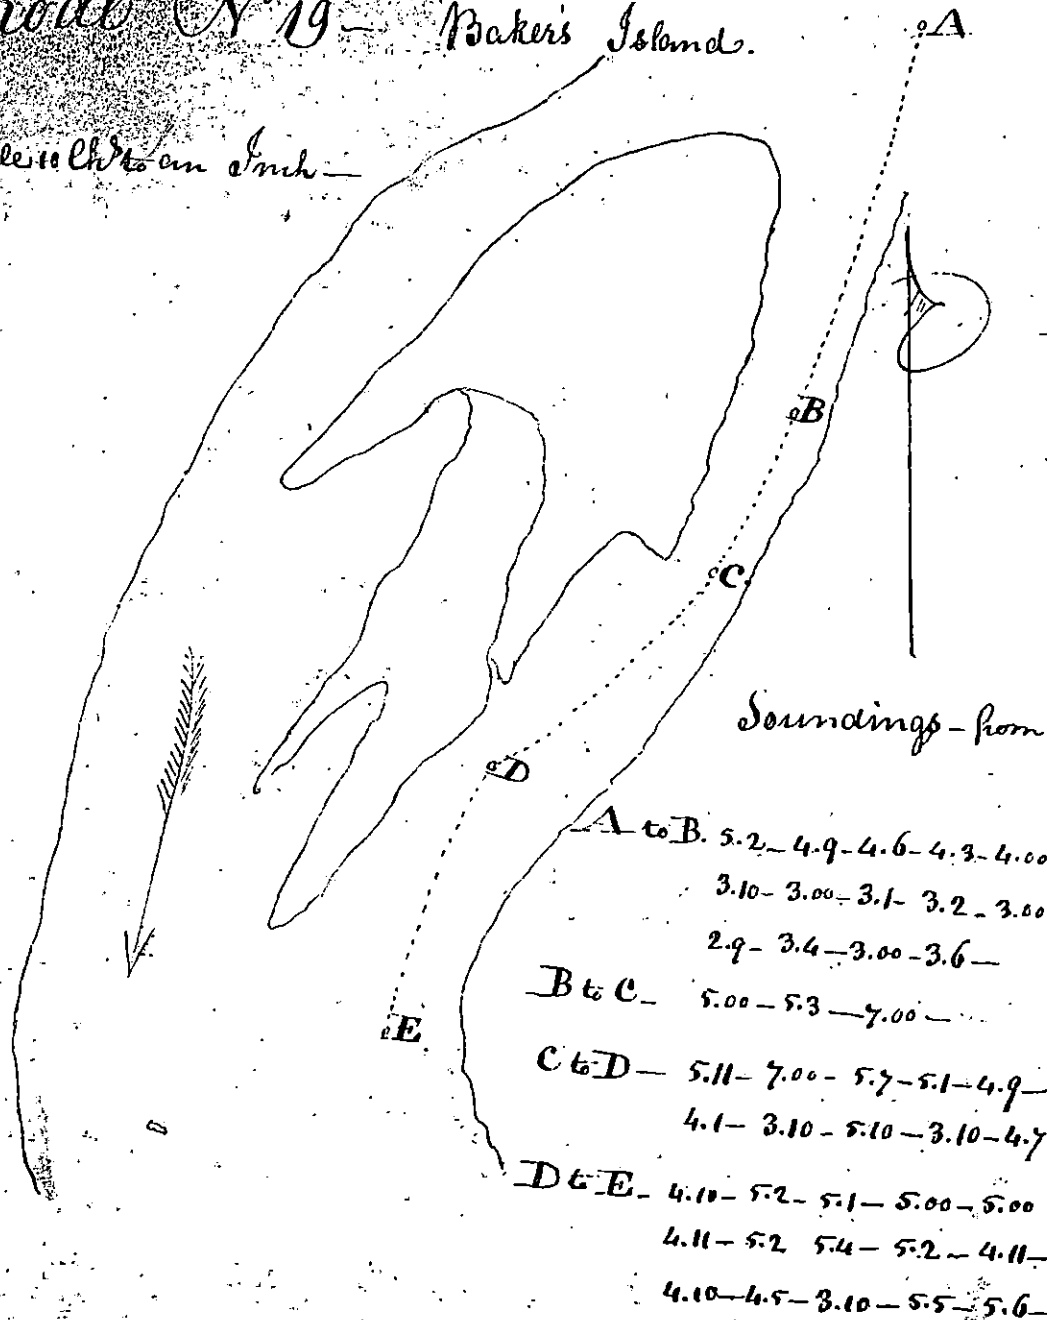 N 19 - Baker's Island.
A
to an Inch —
B
C.
D
E.
Soundings - from
A to B. 5.2 - 4.9 - 4.6 - 4.3 - 4.00
3.10 - 3.00 - 3.1 - 3.2 - 3.00
2.9 - 3.4 - 3.00 - 3.6 —
B to C - 5.00 - 5.3 - 7.00 -
C to D — 5.11 - 7.00 - 5.7 - 5.1 - 4.9 -
4.1 - 3.10 - 5.10 - 3.10 - 4.7
D to E - 4.10 - 5.2 - 5.1 - 5.00 - 5.00
4.11 - 5.2 5.4 - 5.2 - 4.11 -
4.10 - 4.5 - 3.10 - 5.5 - 5.6 -